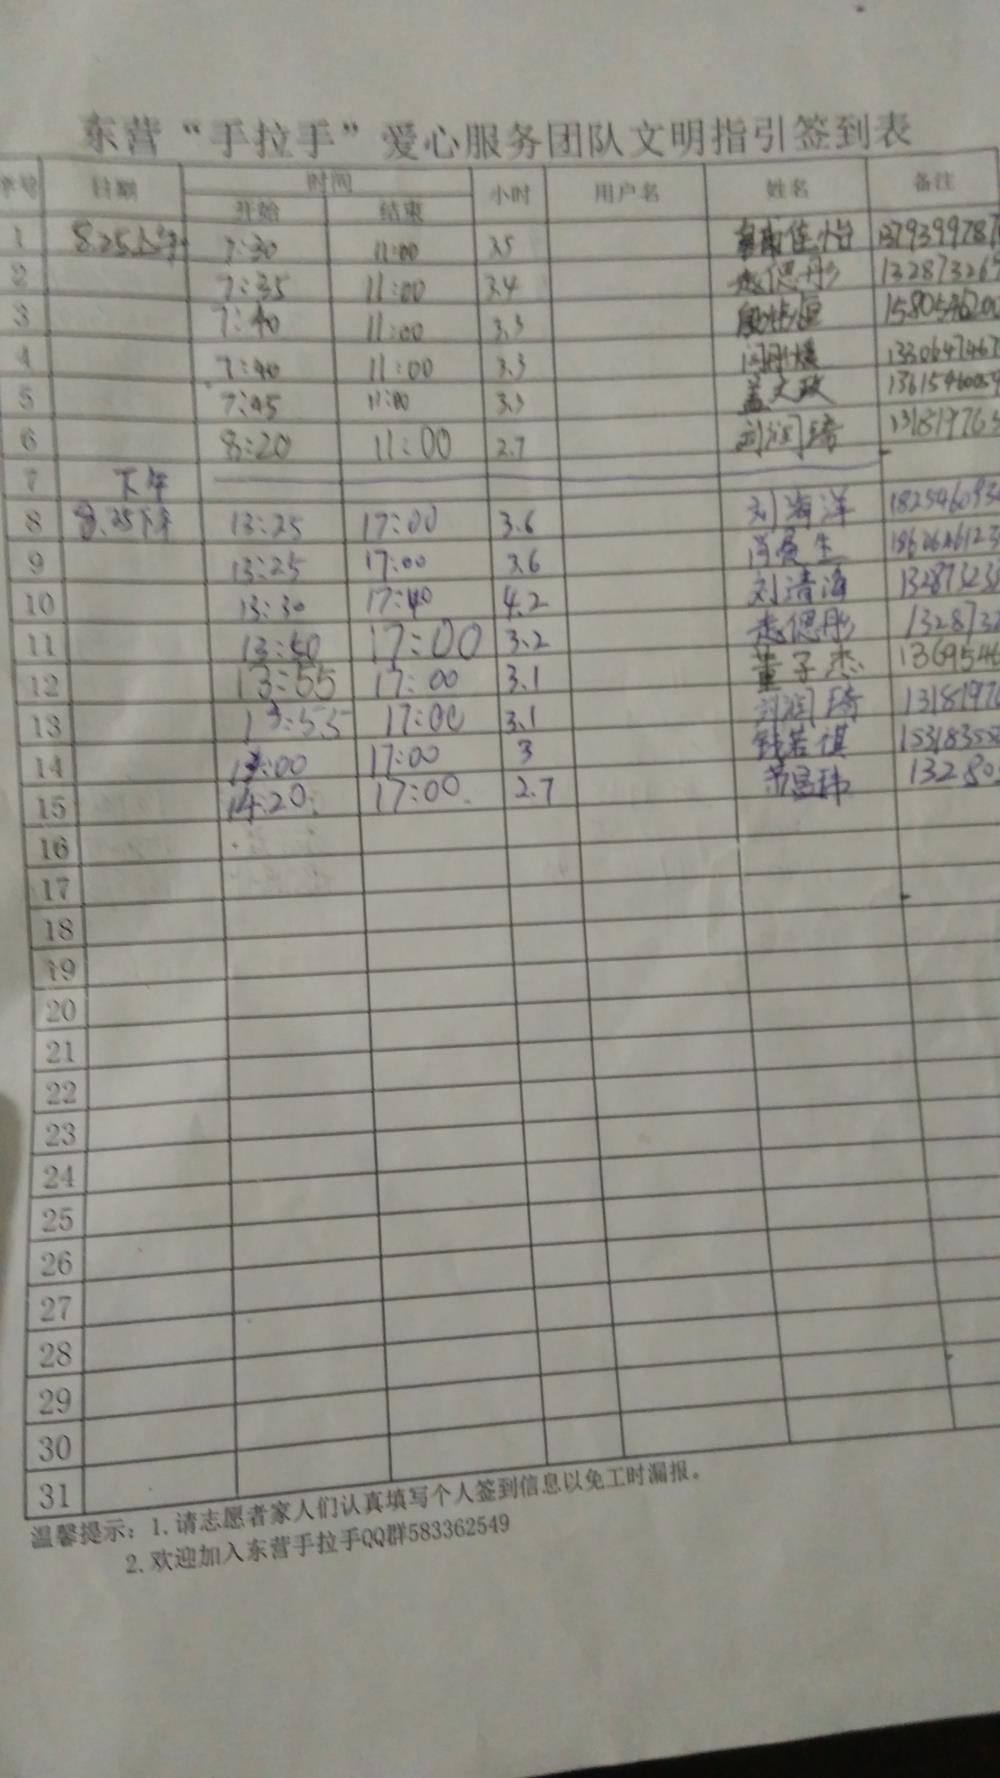 东营“手拉手”爱心服务团队文明指引签到表
序号 日期 时间 小时 用户名 姓名 备注
开始 结束
1 8.25上午 7:30 11:00 3.5 佳怡
2 7:35 11:00 3.4 赵偲彤
3 7:40 11:00 3.3
4 7:40 11:00 3.3
5 7:45 11:00 3.3 孟文政
6 8:20 11:00 2.7 刘润琦
7 下午
8 8.25下午 13:25 17:00 3.6 刘海洋
9 13:25 17:00 3.6
10 13:30 17:40 4.2 刘清海
11 13:50 17:00 3.2 赵偲彤
12 13:55 17:00 3.1 董子杰
13 13:55 17:00 3.1 刘润琦
14 14:00 17:00 3 钱若祺
15 14:20 17:00 2.7
16
17
18
19
20
21
22
23
24
25
26
27
28
29
30
31
温馨提示：1.请志愿者家人们认真填写个人签到信息以免工时漏报。
2.欢迎加入东营手拉手QQ群583362549